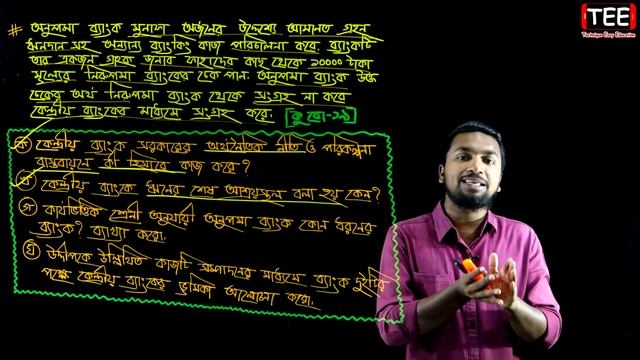 TEE
Technique Easy Education
# অনুপমা ব্যাংক মুনাফা অর্জনের উদ্দেশ্যে আমানত গ্রহণ
ঋণদান সহ অন্যান্য ব্যাংকিং কাজ পরিচালনা করে। ব্যাংকটি
তার একজন গ্রাহক জনাব ফাহাদের কাছ থেকে ১০০০০ টাকা
মূল্যের নিরুপমা ব্যাংকের চেক পান। অনুপমা ব্যাংক উক্ত
চেকের অর্থ নিরুপমা ব্যাংক থেকে সংগ্রহ না করে
কেন্দ্রীয় ব্যাংকের মাধ্যমে সংগ্রহ করে। [কু বো-১৯]
ক) কেন্দ্রীয় ব্যাংক সরকারের অর্থনৈতিক নীতি ও পরিকল্পনা
বাস্তবায়নে কী হিসাবে কাজ করে?
খ) কেন্দ্রীয় ব্যাংকে ঋনের শেষ আশ্রয়স্থল বলা হয় কেন?
গ) কার্যভিত্তিক শ্রেনী অনুযায়ী অনুপমা ব্যাংক কোন ধরনের
ব্যাংক? ব্যাখ্যা করো।
ঘ) উদ্দীপকে উল্লিখিত কাজটি সম্পাদনের মাধ্যমে ব্যাংক দুইটির
পক্ষে কেন্দ্রীয় ব্যাংকের ভূমিকা আলোচনা করো।